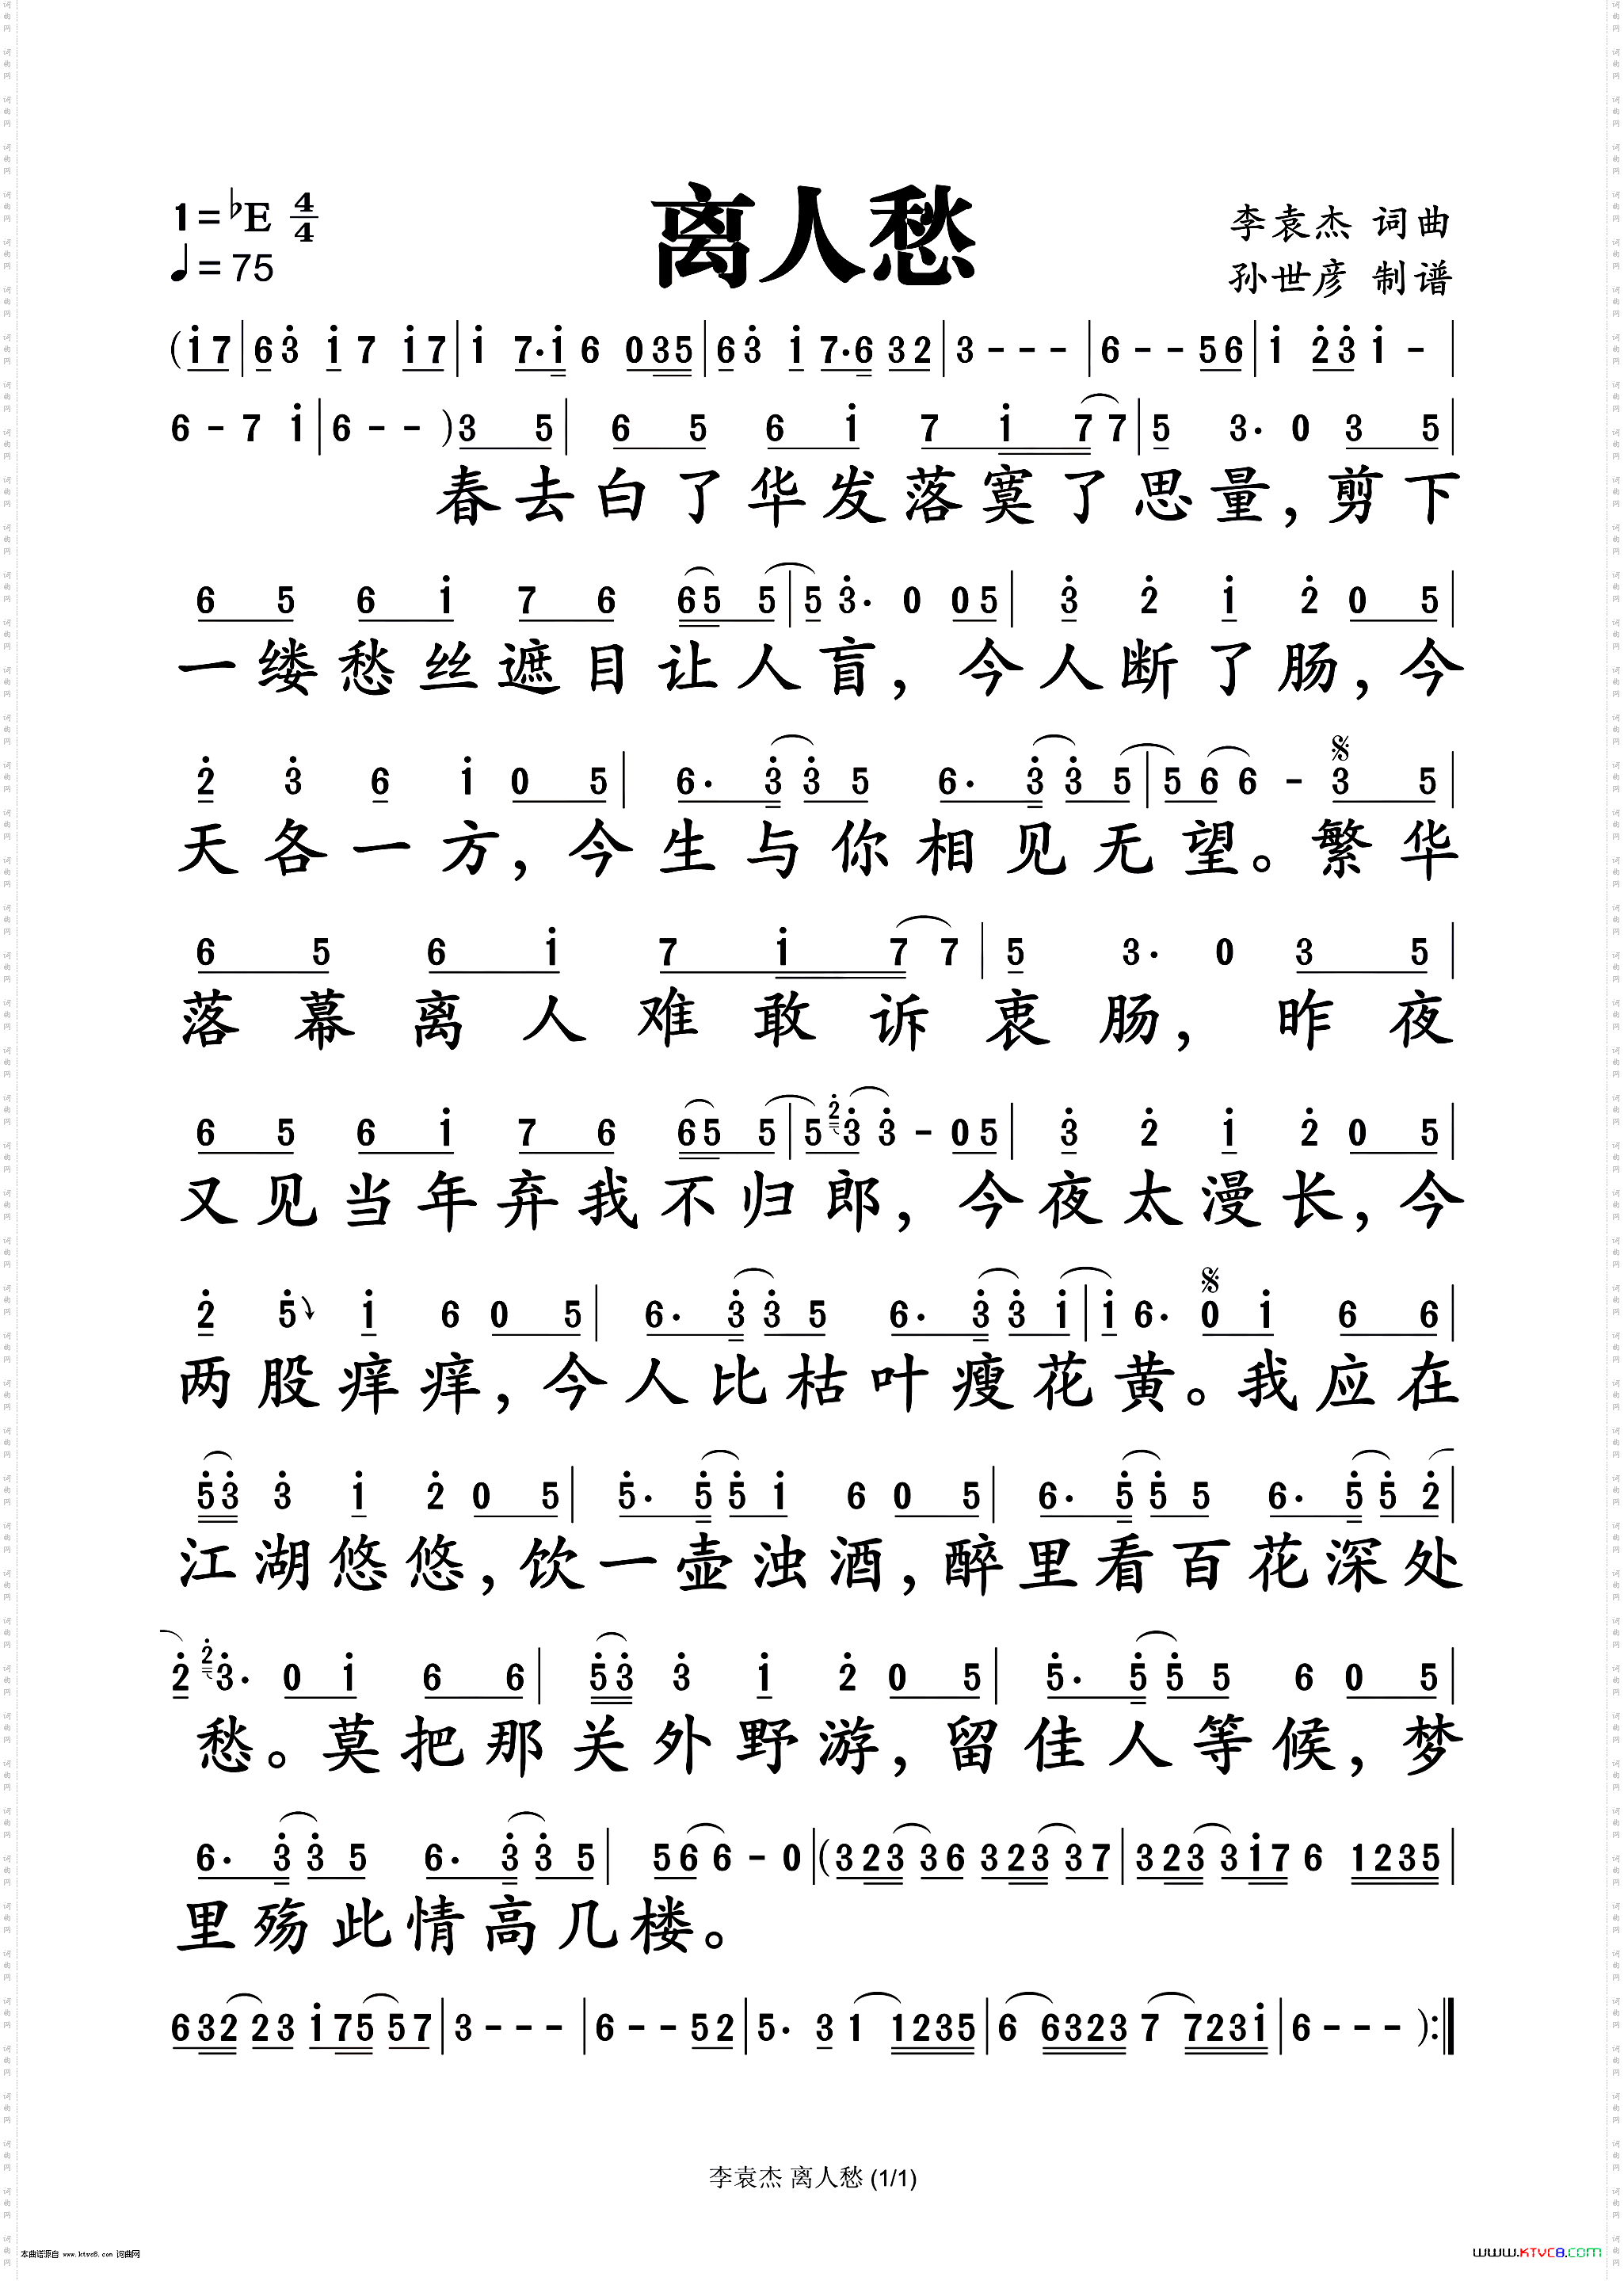 离人愁
1=♭E 4/4
♩=75
李袁杰 词曲
孙世彦 制谱
(i7|63 i 7 i7|i 7·i 6 035|63 i 7·6 32|3---|6--56|i 23 i -|
6-7 i|6--)3 5|6 5 6 i 7 i 7 7|5 3· 0 3 5|
春去白了华发落寞了思量,剪下
6 5 6 i 7 6 65 5|5 3· 0 05|3 2 i 2 0 5|
一缕愁丝遮目让人盲,今人断了肠,今
2 3 6 i 0 5|6· 3 3 5 6· 3 3 5|5 6 6 - 3 5|
天各一方,今生与你相见无望。繁华
6 5 6 i 7 i 7 7|5 3· 0 3 5|
落幕离人难敢诉衷肠,昨夜
6 5 6 i 7 6 65 5|5 2 3 3 - 05|3 2 i 2 0 5|
又见当年弃我不归郎,今夜太漫长,今
2 5 i 6 0 5|6· 3 3 5 6· 3 3 i|i 6· 0 i 6 6|
两股痒痒,今人比枯叶瘦花黄。我应在
53 3 i 2 0 5|5· 5 5 i 6 0 5|6· 5 5 5 6· 5 5 2|
江湖悠悠,饮一壶浊酒,醉里看百花深处
2 2 3· 0 i 6 6|53 3 i 2 0 5|5· 5 5 5 6 0 5|
愁。莫把那关外野游,留佳人等候,梦
6· 3 3 5 6· 3 3 5|56 6 - 0|(323 36 323 37|323 3i7 6 1235|
里殇此情高几楼。
632 23 i75 57|3---|6--52|5· 3 1 1235|6 6323 7 723i|6---):|
李袁杰 离人愁 (1/1)
本曲谱源自 www.ktvc8.com 词曲网
www.KTVC8.com